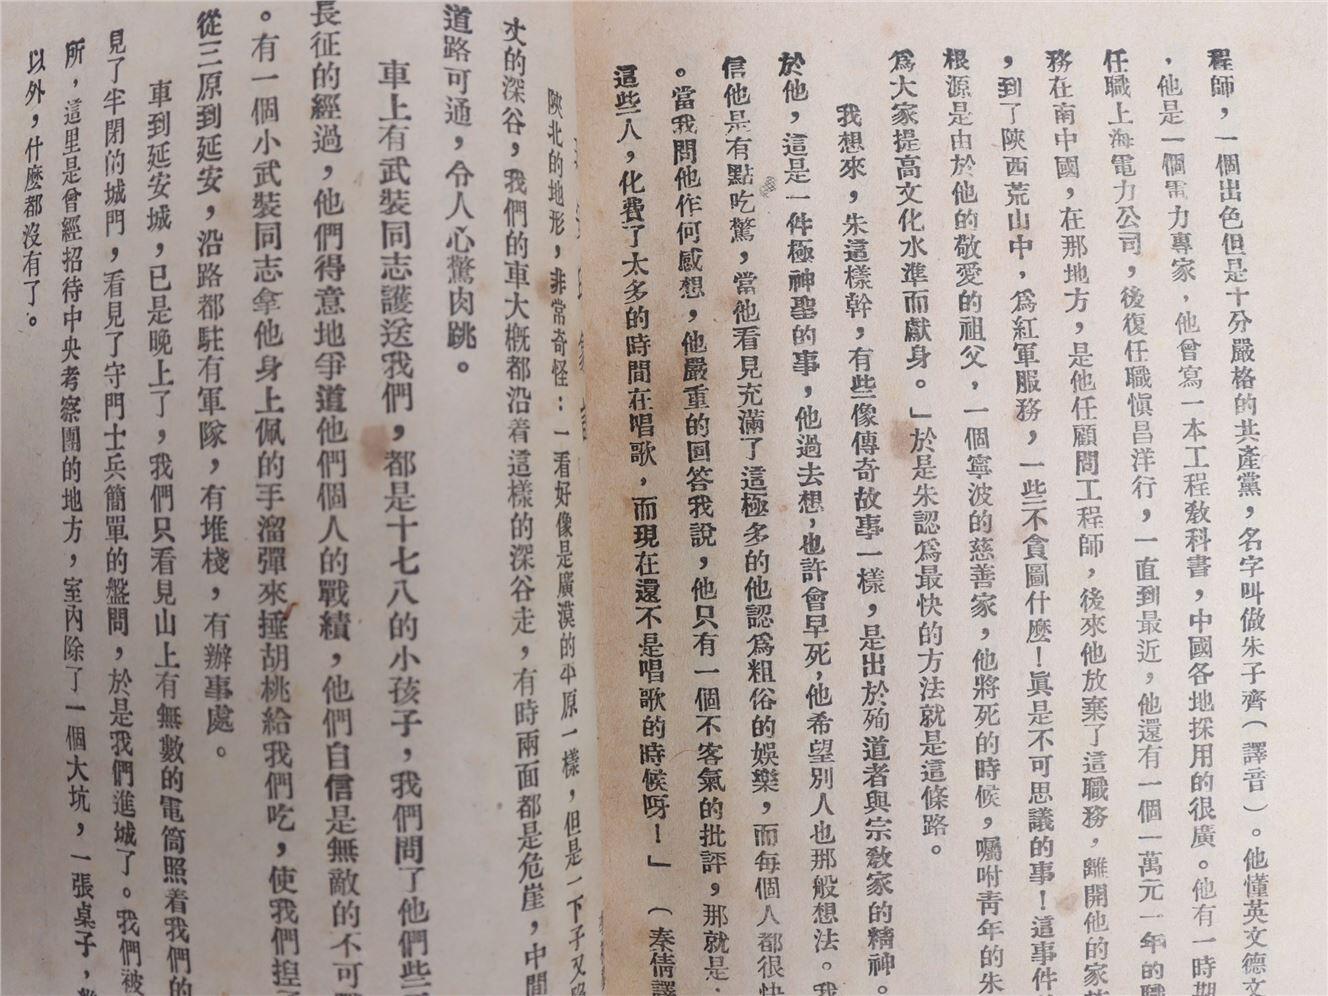 程師，一個出色但是十分嚴格的共產黨，名字叫做朱子齊（譯音）。他懂英文德文
，他是一個電力專家，他曾寫一本工程教科書，中國各地採用的很廣。他有一時期
任職上海電力公司，後復任職愼昌洋行，一直到最近，他還有一個一萬元一年的職
務在南中國，在那地方，是他任顧問工程師，後來他放棄了這職務，離開他的家
，到了陝西荒山中，爲紅軍服務，一些不貪圖什麼！眞是不可思議的事！這事件
根源是由於他的敬愛的祖父，一個寧波的慈善家，他將死的時候，囑咐靑年的朱
爲大家提高文化水準而獻身。」於是朱認爲最快的方法就是這條路。
我想來，朱這樣幹，有些像傳奇故事一樣，是出於殉道者與宗教家的精神。
於他，這是一件極神聖的事，他過去想，也許會早死，他希望別人也那般想法。我
信他是有點吃驚，當他看見充滿了這極多的他認爲粗俗的娛樂，而每個人都很快
。當我問他作何感想，他嚴重的回答我說，他只有一個不客氣的批評，那就是
這些人，化費了太多的時間在唱歌，而現在還不是唱歌的時候呀！」（秦倩譯
陝北的地形，非常奇怪：一看好像是廣漠的平原一樣，但是一下子又
丈的深谷，我們的車大概都沿着這樣的深谷走，有時兩面都是危崖，中間
道路可通，令人心驚肉跳。
車上有武裝同志護送我們，都是十七八的小孩子，我們問了他們些
長征的經過，他們得意地爭道他們個人的戰績，他們自信是無敵的不可
。有一個小武裝同志拿他身上佩的手溜彈來捶胡桃給我們吃，使我們揑
從三原到延安，沿路都駐有軍隊，有堆棧，有辦事處。
車到延安城，已是晚上了，我們只看見山上有無數的電筒照着我們的
見了半閉的城門，看見了守門士兵簡單的盤問，於是我們進城了。我們被
所，這里是曾經招待中央考察團的地方，室內除了一個大坑，一張桌子，
以外，什麼都沒有了。